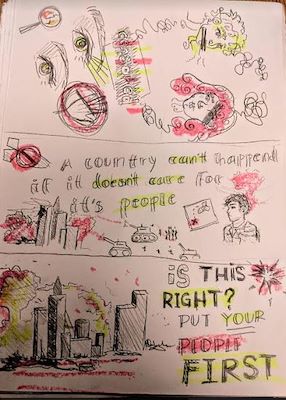 A country can't happend
if it doesn't care for
it's people
IS THIS
RIGHT?
PUT YOUR
PEOPLE
FIRST